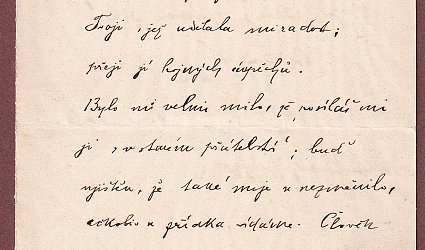 Tvoji, jež udělala mi radost;
přeji jí hojných úspěchů.
Bylo mi velmi milo, že posíláš mi
ji „v starém přátelství“; buď
ujištěn, že také moje se nezměnilo,
ač kdo se zřídka vídáme. Člověk